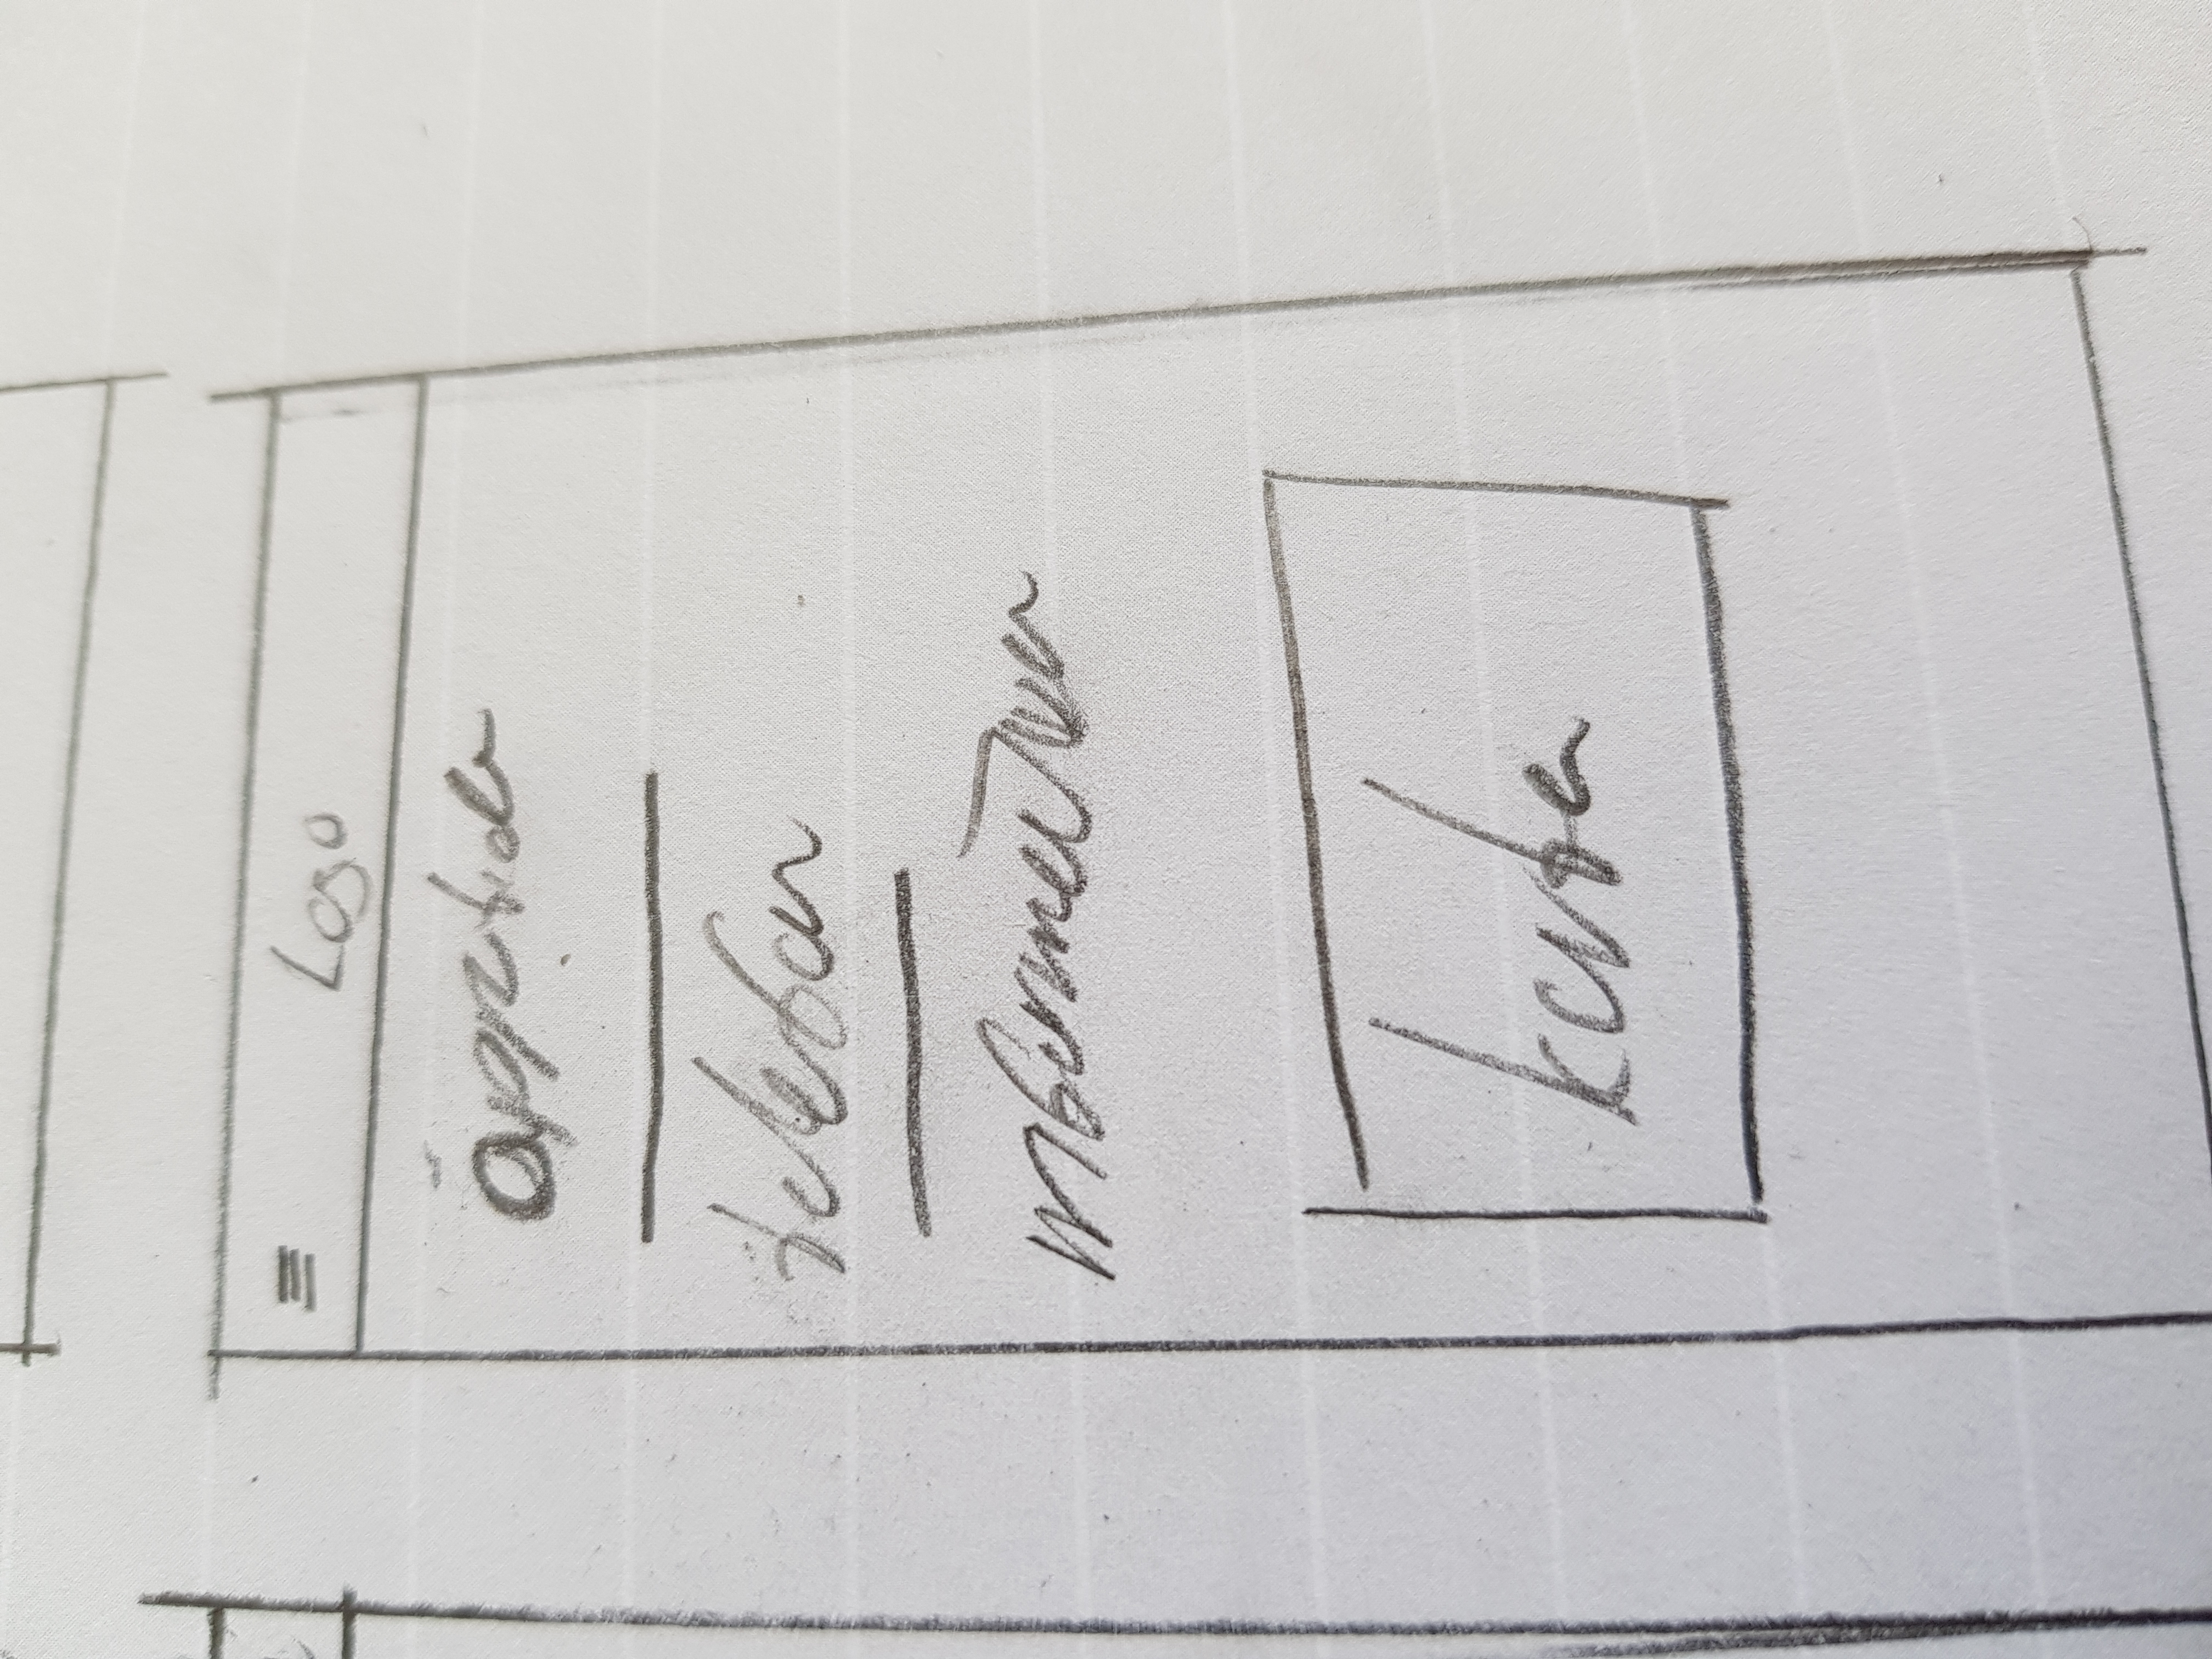 Logo
öppetider
telefon
information
karta